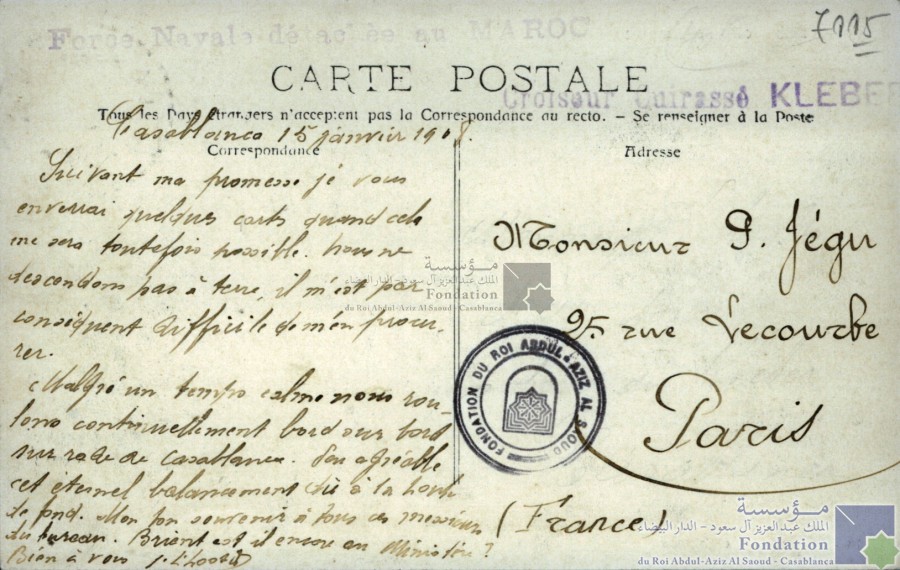 7115
Force Navale détachée au MAROC
CARTE POSTALE
Croiseur Cuirassé KLEBER
Tous les Pays étrangers n'acceptent pas la Correspondance au recto. – Se renseigner à la Poste
Casablanca 15 janvier 1908.
Correspondance
Suivant ma promesse je vous
enverrai quelques carts quand cela
me sera toutefois possible. Nous ne
descendons pas à terre, il m'est par
conséquent difficile de m'en procu-
rer.
Malgré un temps calme nous rou-
lons continuellement bord sur bord
sur rade de Casablanca. Peu agréable
cet éternel balancement dû à la houle
de fond. Mon bon souvenir à tous ces messieurs
du bureau. Brient est il encore au Ministère ?
Bien à vous
Adresse
Monsieur P. Jégu
95 rue Lecourbe
Paris
(France)
مؤسسة
الملك عبد العزيز آل سعود - الدار البيضاء
Fondation
du Roi Abdul-Aziz Al Saoud - Casablanca
FONDATION DU ROI ABDUL-AZIZ AL SAOUD
مؤسسة
الملك عبد العزيز آل سعود - الدار البيضاء
Fondation
du Roi Abdul-Aziz Al Saoud - Casablanca